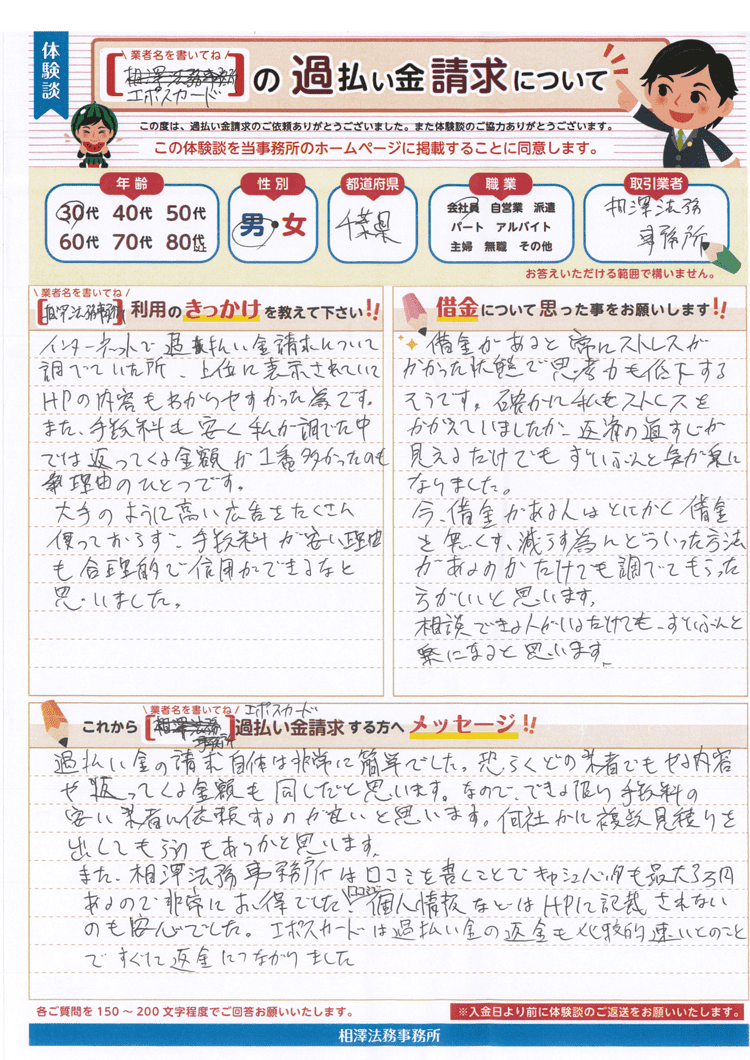 体験談
業者名を書いてね
[相澤法務事務所 エポスカード]の過払い金請求について
この度は、過払い金請求のご依頼ありがとうございました。また体験談のご協力ありがとうございます。
この体験談を当事務所のホームページに掲載することに同意します。
年齢
30代 40代 50代
60代 70代 80代以上
性別
男・女
都道府県
千葉県
職業
会社員 自営業 派遣
パート アルバイト
主婦 無職 その他
取引業者
相澤法務
事務所
お答えいただける範囲で構いません。
業者名を書いてね
[相澤法務事務所]利用のきっかけを教えて下さい!!
インターネットで過払い金請求について
調べていた所、上位に表示されていて
HPの内容もわかりやすかった為です。
また、手数料も安く私が調べた中
では返ってくる金額が1番多かったのも
理由のひとつです。
大手のように高い広告をたくさん
使っておらず、手数料が安い理由
も合理的で信用ができるなと
思いました。
借金について思った事をお願いします!!
借金があると常にストレスが
かかった状態で思考力も低下する
そうです。確かに私もストレスを
かかえていましたが、返済の道すじが
見えるだけでもずいぶんと気が楽に
なりました。
今、借金がある人はとにかく借金
を無くす、減らす為にどういった方法
があるのかだけでも調べてもらった
方がいいと思います。
相談できる人がいるだけでも、ずいぶんと
楽になると思います。
業者名を書いてね エポスカード
これから[相澤法務事務所]過払い金請求する方へメッセージ!!
過払い金の請求自体は非常に簡単でした。恐らくどの業者でもやる内容
や返ってくる金額も同じだと思います。なので、できる限り手数料の
安い業者に依頼するのが良いと思います。何社かに複数見積りを
出してもらうのもありかと思います。
また、相澤法務事務所は口コミを書くことでキャッシュバックも最大3万円
あるので非常にお得でした。口コミに個人情報などはHPに記載されない
のも安心でした。エポスカードは過払い金の返金も比較的速いとのこと
ですぐに返金につながりました
各ご質問を150～200文字程度でご回答お願いいたします。
※入金日より前に体験談のご返送をお願いいたします。
相澤法務事務所